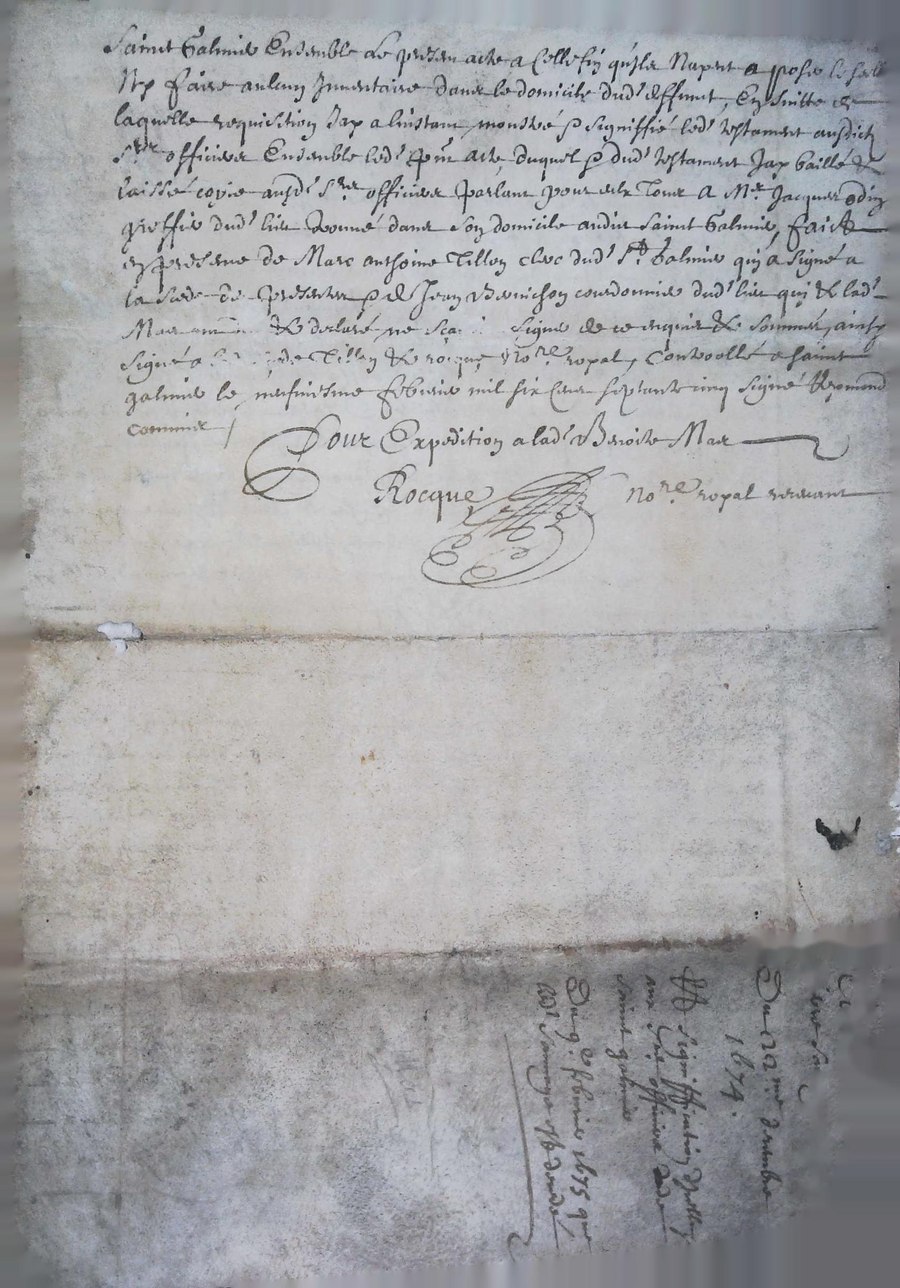 Saint Galmier Ensemble Le presen acte a Celle fin quils Nayent a poser le scelle
Ny faire aulcun Jnventaire dans le domicile dud: deffunt, En suitte de
laquelle requisition Jay a linstant monstré & signiffié led: testament ausdictz
Srs officiers Ensemble led: pnt acte, duquel & dud: testament Jay baillé &
laissé copie ausd: Srs officiers parlant pour eulx tous a Mer Jacques Odin
greffier dud: lieu trouvé dans son domicile audit Saint Galmier, faict
en presence de Marc anthoine Tillon clerc dud: St Galmier qui a signé a
la cede de presentes & de Jean Bonnichon courdonnier dud: lieu qui & lad:
Mar de declaré ne sca signe de ce enquis & sommés, ainsy
signé a Tillon & rocque No:re royal, Controollé a saint
galmier le neufviesme febvrier mil six cens septante cinq signé Reymond
commis /
Pour Expedition a lad: Benoite Mar
Rocque No:re royal recevant
Du 22me decembre
1674.
Et Signiffication dicelluy
aux Srs officiers dud:
saint galmier
Du 9e febvrier 1675